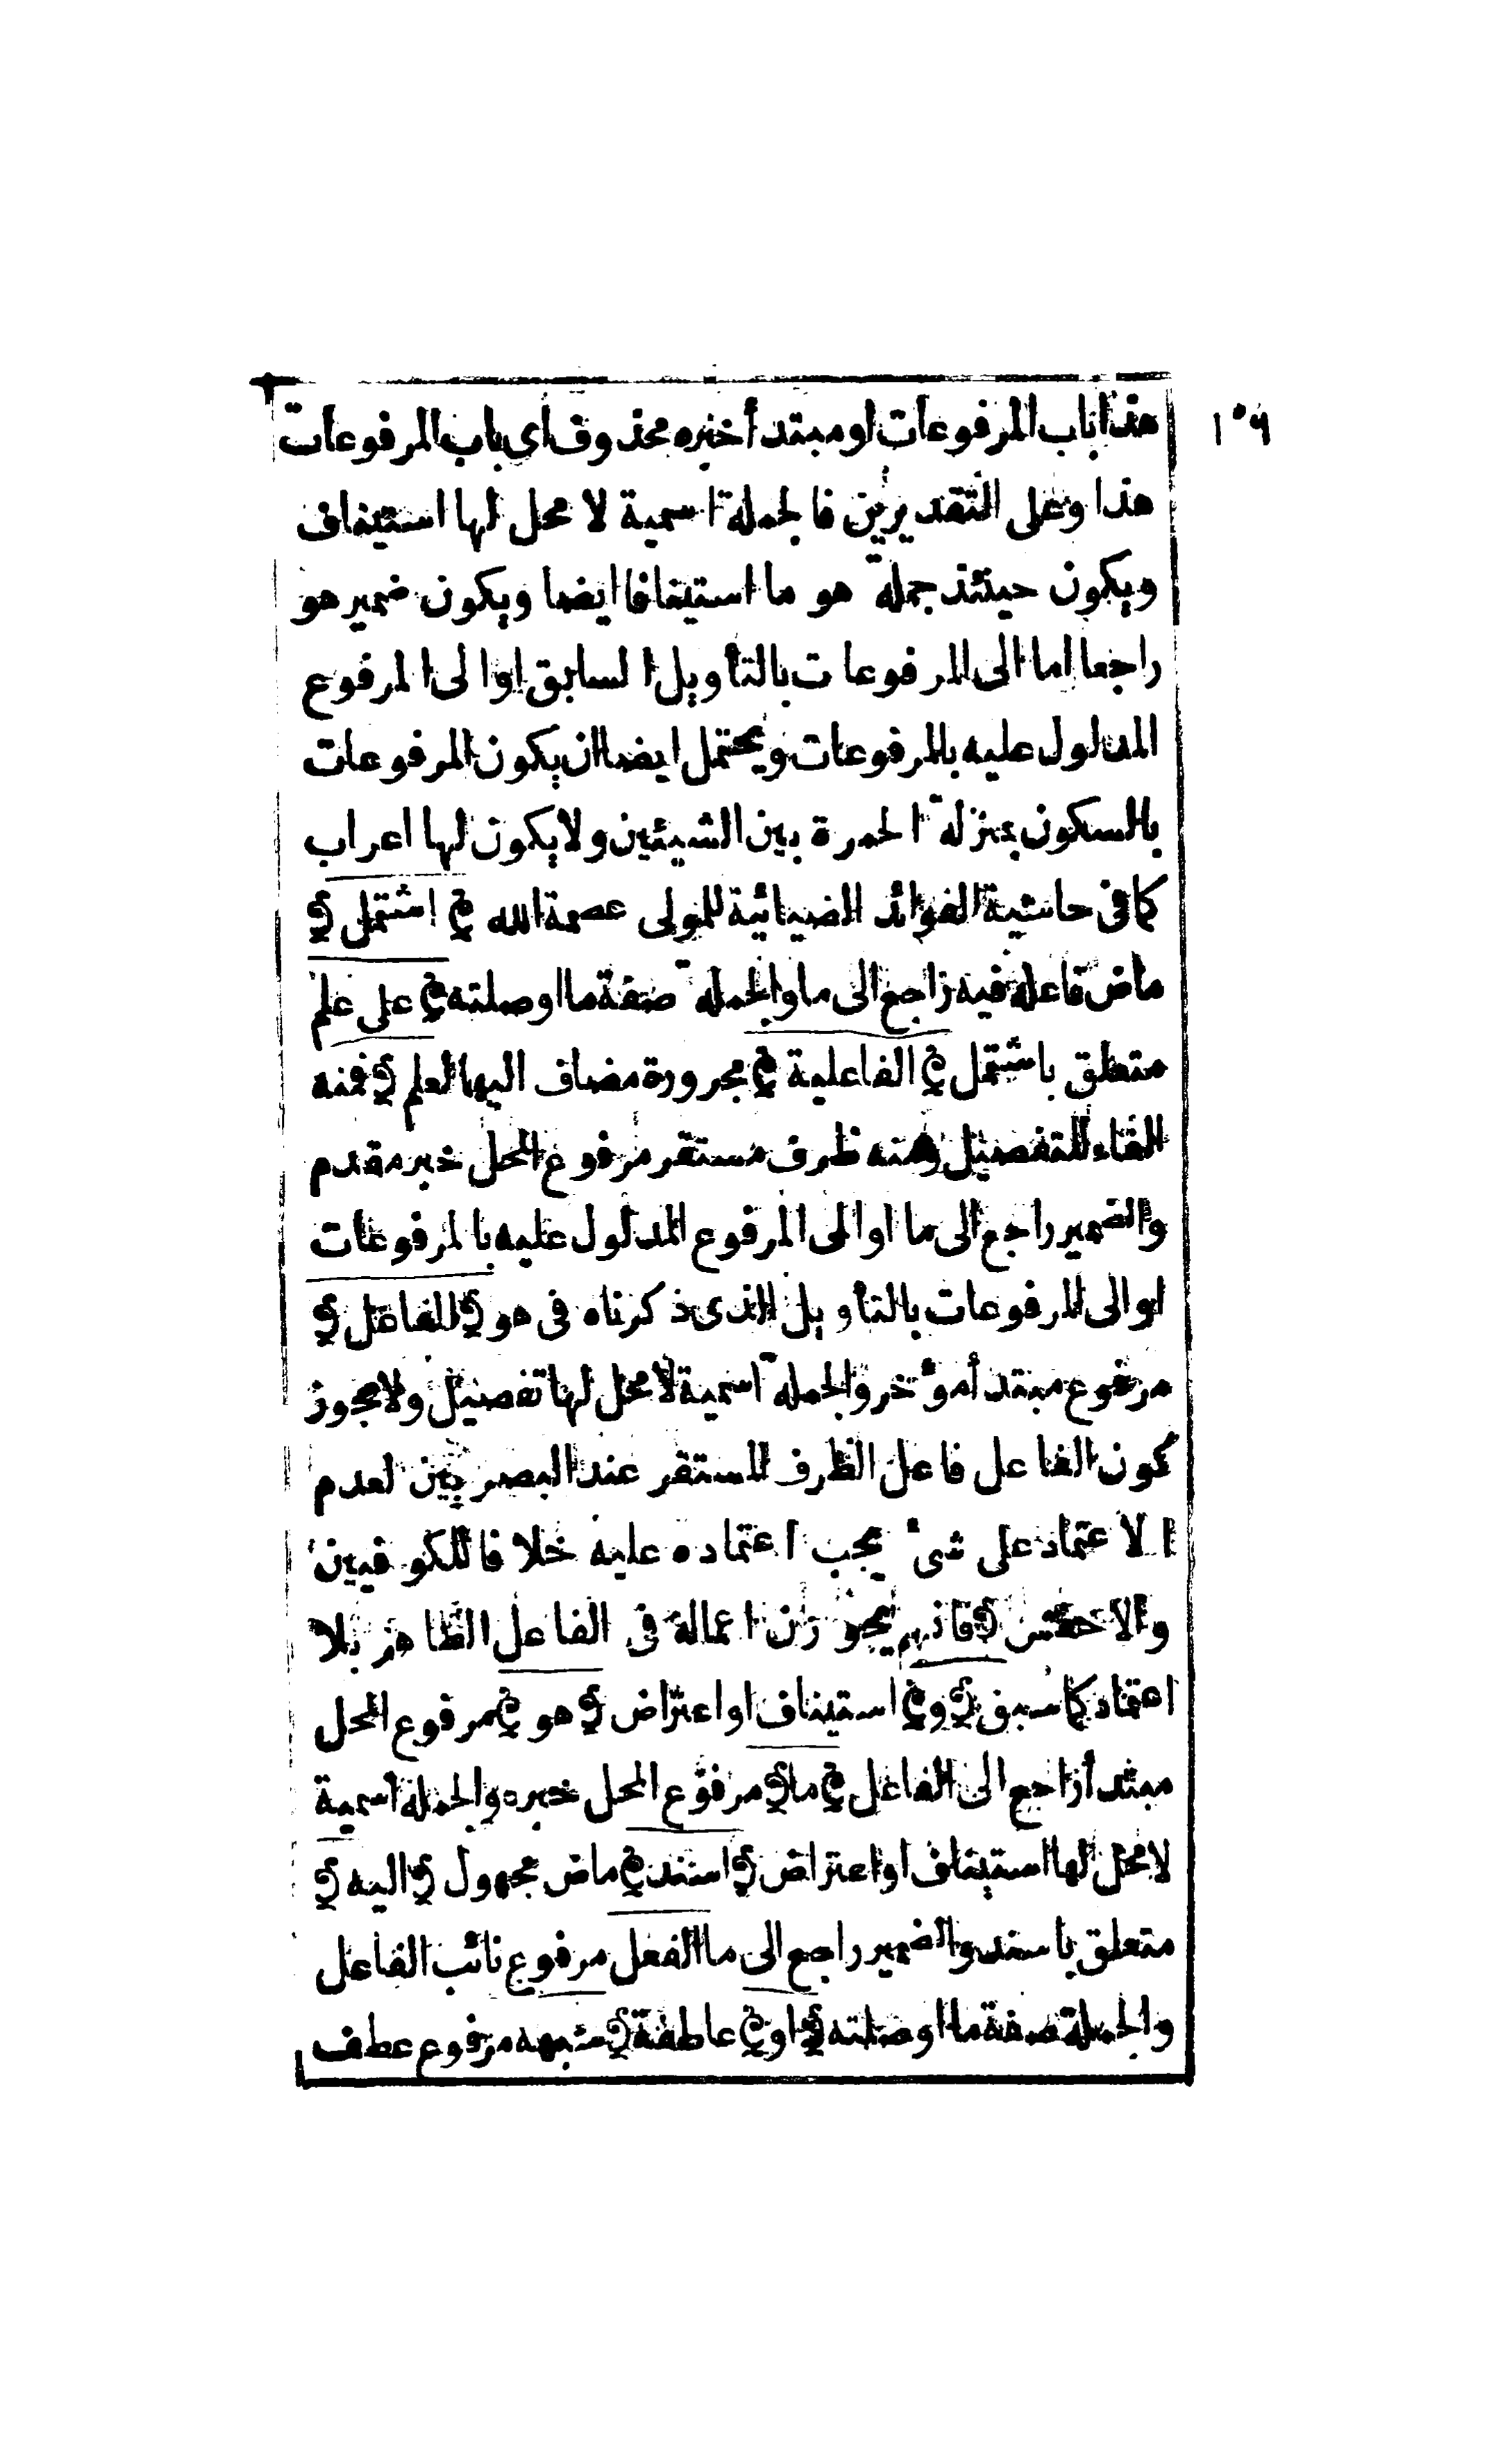 ١٠٦
هذا باب المرفوعات او مبتدأ خبره محذوف اى باب المرفوعات
هذا وعلى التقديرين فالجملة اسمية لا محل لها استيناف
ويكون حينئذ جملة هو ما استينافا ايضا ويكون ضمير هو
راجعا اما الى المرفوعات بالتأويل السابق او الى المرفوع
المدلول عليه بالمرفوعات ويحتمل ايضا ان يكون المرفوعات
بالسكون بمنزلة الحمرة بين الشيئين ولا يكون لها اعراب
كما فى حاشية الفوائد الضيائية للمولى عصمة الله اشتمل
ماض فاعله فيه راجع الى ما والجملة صفة ما او صلته على علم
متعلق باشتمل الفاعلية مجرورة مضاف اليها لعلم فمنه
الفاء للتفصيل ومنه ظرف مستقر مرفوع المحل خبر مقدم
والضمير راجع الى ما او الى المرفوع المدلول عليه بالمرفوعات
او الى المرفوعات بالتأويل الذى ذكرناه فى هو الفاعل
مرفوع مبتدأ مؤخر والجملة اسمية لا محل لها تفصيل ولا يجوز
كون الفاعل فاعل الظرف المستقر عند البصريين لعدم
الاعتماد على شئ يجب اعتماده عليه خلافا للكوفيين
والاخفش فانهم يجوزن اعماله فى الفاعل الظاهر بلا
اعتماد كما سبق و استيناف او اعتراض هو مرفوع المحل
مبتدأ راجع الى الفاعل ما مرفوع المحل خبره والجملة اسمية
لا محل لها استيناف او اعتراض اسند ماض مجهول اليه
متعلق باسند والضمير راجع الى ما الفعل مرفوع نائب الفاعل
والجملة صفة ما او صلته او عاطفة شبهه مرفوع عطف